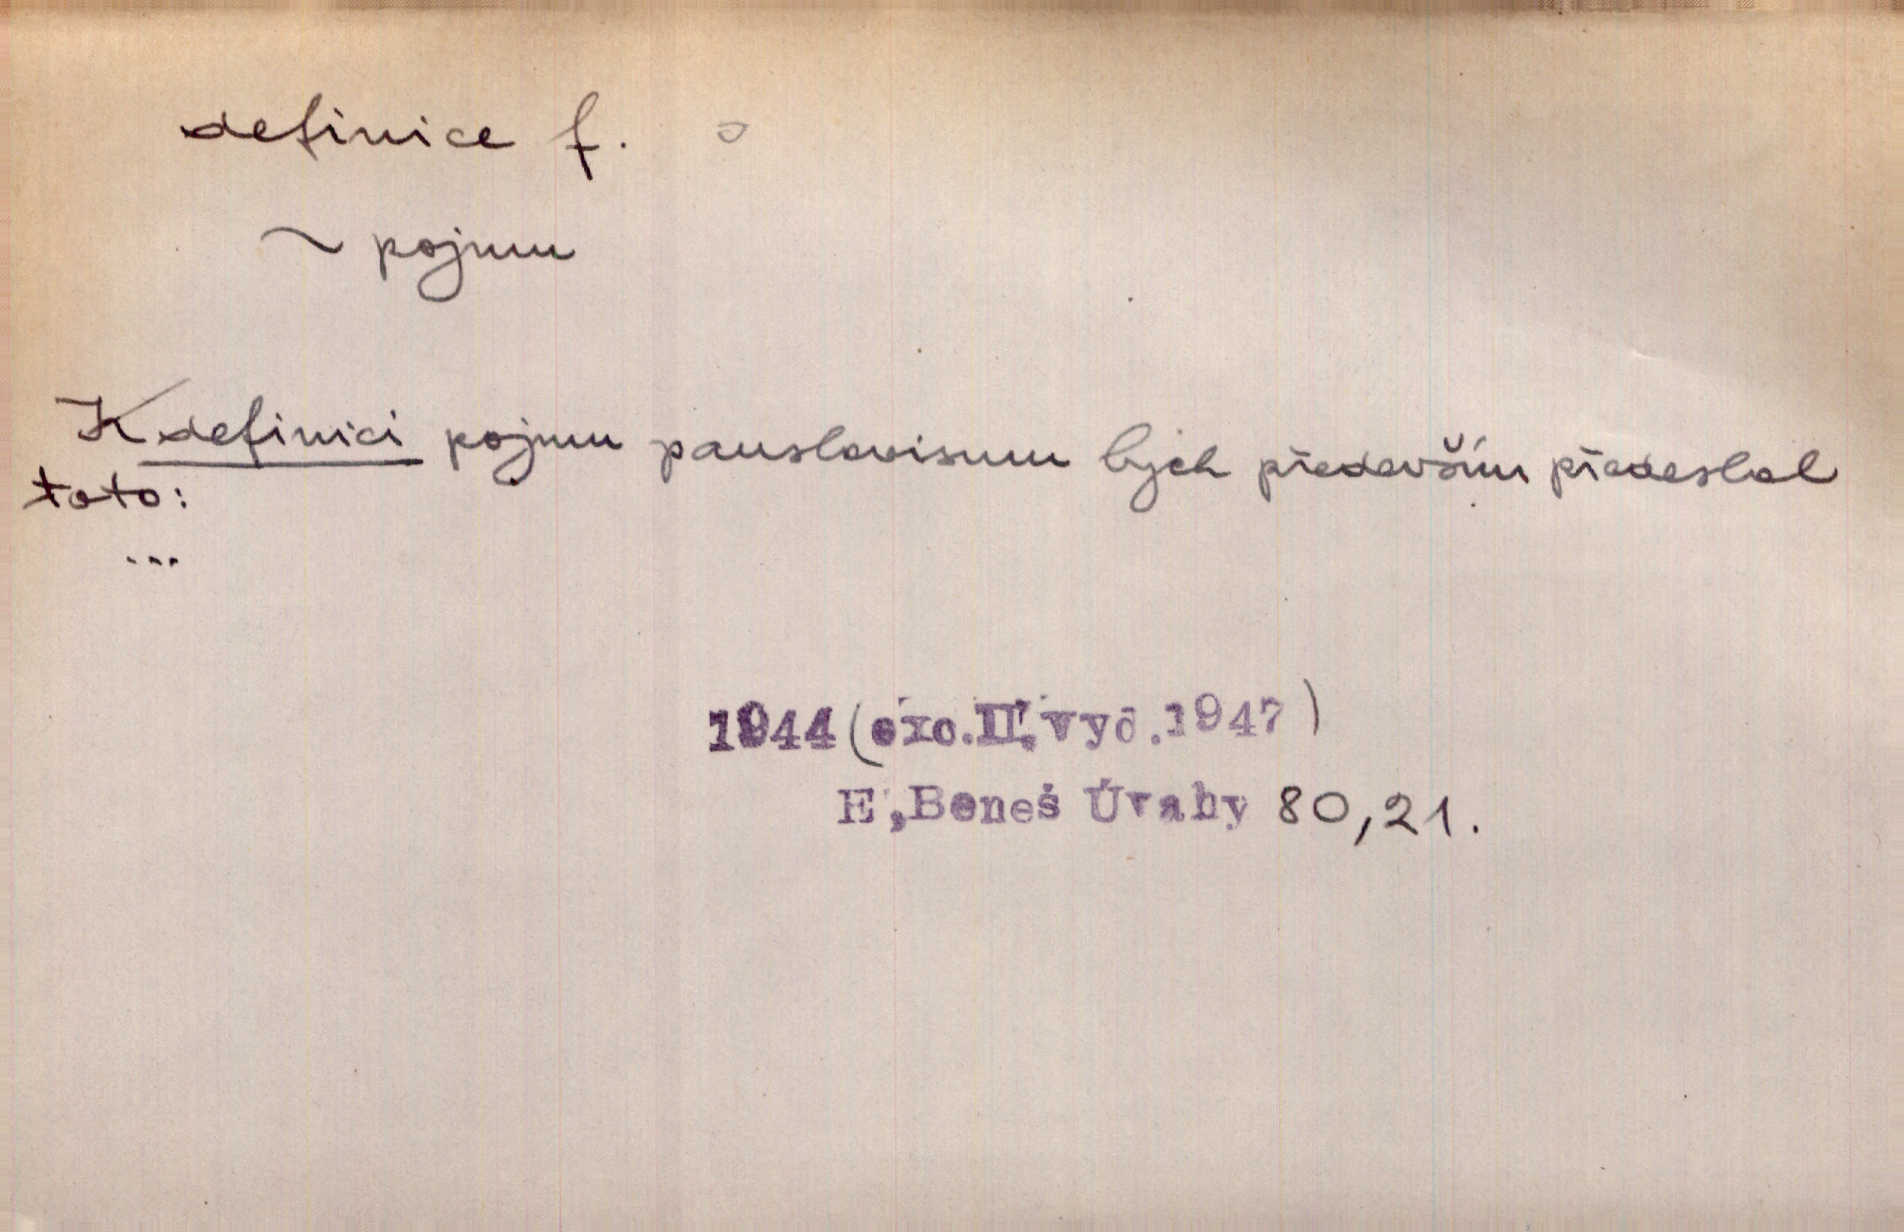 definice f.
~ pojmu
K definici pojmu panslavismu bych především předeslal
toto:
...
1944 (exc. II. vyd. 1947)
E. Beneš Úvahy 80, 21.